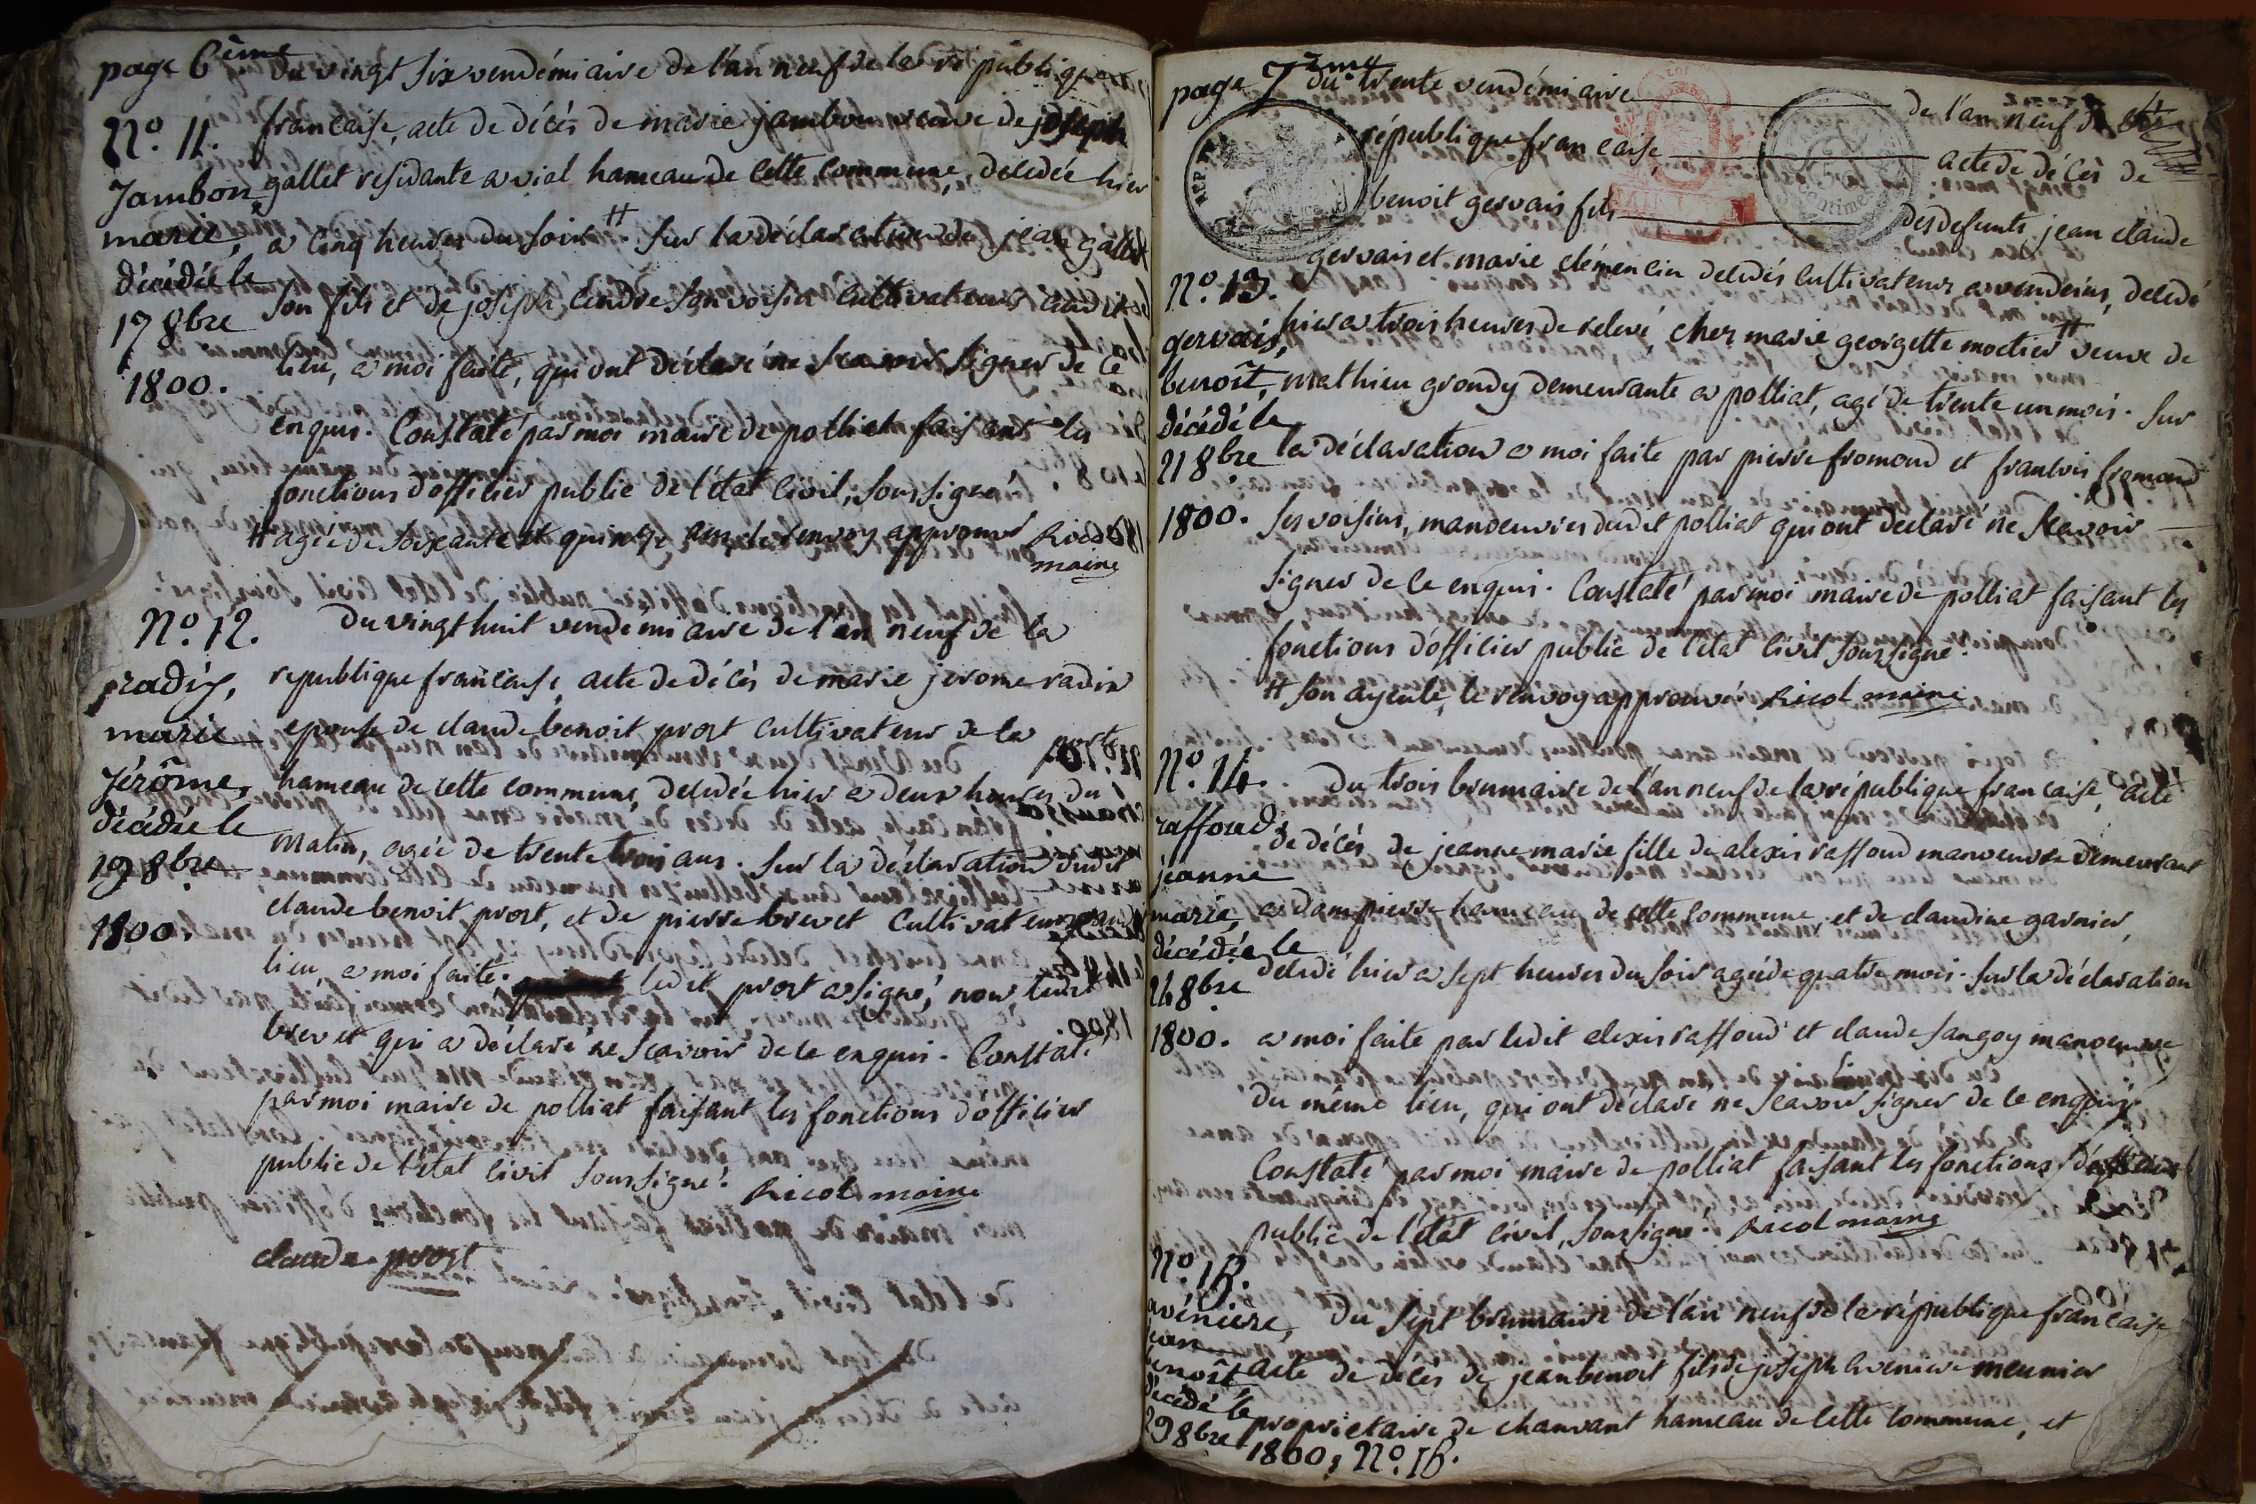 page 6ème
du vingt six vendémiaire de l'an neuf de la république
No. 11. française, acte de décès de marie jambon veuve de joseph
Jambon gallet residante a vial hameau de cette commune, décédée hier
marie, a cinq heures du soir # . Sur la déclaration de jean gallet
décédée le son fils et de joseph cendre son voisin cultivateurs audit
17 8bre lieu, a moi faite, qui ont déclaré ne scavoir signer de ce
1800. enquis. Constaté par moi maire de polliat faisant les
fonctions d'officier public de l'état civil, soussigné
# agée de soixante et quinze ans, le renvoy approuvé Ricol
maire
No. 12. Du vingt huit vendémiaire de l'an neuf de la
radix, republique française, acte de décès de marie jerome radix
marie epouse de claude benoit prost cultivateur de la poste
Jérôme, hameau de cette commune, décédée hier a deux heures du
décédée le matin, agée de trente trois ans. Sur la déclaration dudit
19 8bre claude benoit prost, et de pierre brevet cultivateurs audit
1800. lieu a moi faite. ledit prost a signé, non ledit
brevet qui a déclaré ne scavoir de ce enquis. Constaté
par moi maire de polliat faisant les fonctions d'officier
public de l'état civil soussigné. Ricol maire
claude prost
page 7ème
du trente vendémiaire de l'an neuf de la
république française, acte de décès de
benoit gervais fils des defunts jean claude
gervais et marie clémencin décédés cultivateurs a vendeins, décédé
No. 13.
gervais, hier a trois heures de relevé, chez marie georgette moctier # veuve de
benoît, mathieu grondy demeurante a polliat, agé de trente un mois. Sur
décédé le
21 8bre la déclaration a moi faite par pierre fromond et francois fromond
1800. ses voisins, manoeuvres dudit polliat qui ont declaré ne scavoir
signer de ce enquis. Constaté par moi maire de polliat faisant les
fonctions d'officier public de l'état civil soussigné.
# son ayeule, le renvoy approuvé Ricol maire
No. 14. Du trois brumaire de l'an neuf de la république française, acte
raffoud, de décés de jeanne marie fille de alexis raffoud manoeuvre demeurant
jeanne
marie, a dampierre hameau de cette commune et de claudine garnier,
décédée le
24 8bre décédé hier a sept heures du soir agée de quatre mois. Sur la déclaration
1800. a moi faite par ledit alexis raffoud et claude sangoy manoeuvre
du même lieu, qui ont déclaré ne scavoir signer de ce enquis
Constaté par moi maire de polliat faisant les fonctions d'officier
public de l'état civil, soussigné. Ricol maire
No. 15.
avéniere, Du sept brumaire de l'an neuf de la république française
jean
benoît acte de décès de jean benoit fils de joseph aveniere meunier
décédé le
29 8bre proprietaire de chanvant hameau de cette commune, et
1800, No. 15.